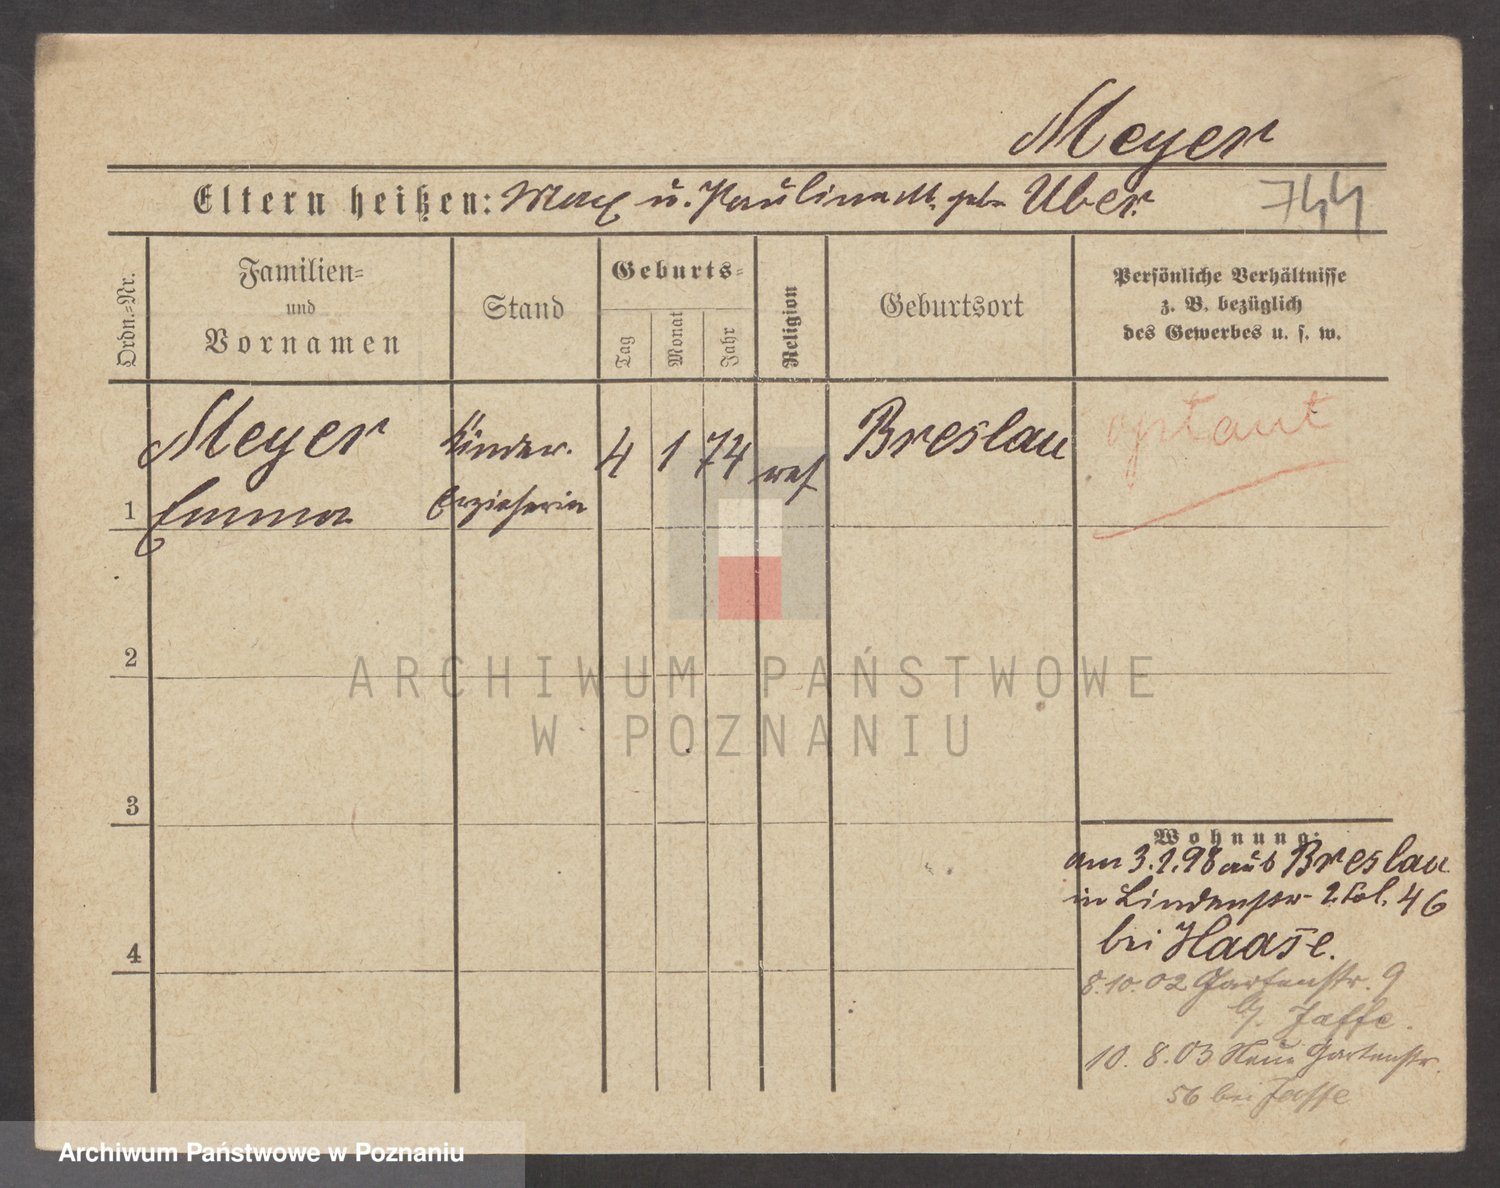 Meyer
Eltern heißen: Max u. Paulina M. geb. Uber.
744
Ordn.=Nr.
Familien=
und
Vornamen
Stand
Geburts=
Tag
Monat
Jahr
Religion
Geburtsort
Persönliche Verhältnisse
z. B. bezüglich
des Gewerbes u. s. w.
Meyer
Emma
1
Kinder.
Erzieherin
4 1 74
ref
Breslau
optant
2
ARCHIWUM PAŃSTWOWE
W POZNANIU
3
Wohnung:
am 3.1.98 aus Breslau
in Lindenstr 46
bei Haase.
4
8.10.02 Gartenstr. 9
b/. Jaffe.
10. 8. 03 Neue Gartenstr.
56 bei Jaffe
Archiwum Państwowe w Poznaniu